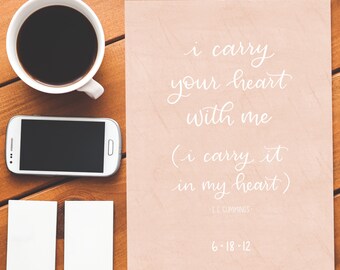 i carry
your heart
with me
(i carry it
in my heart)
E.E. CUMMINGS
6-18-12